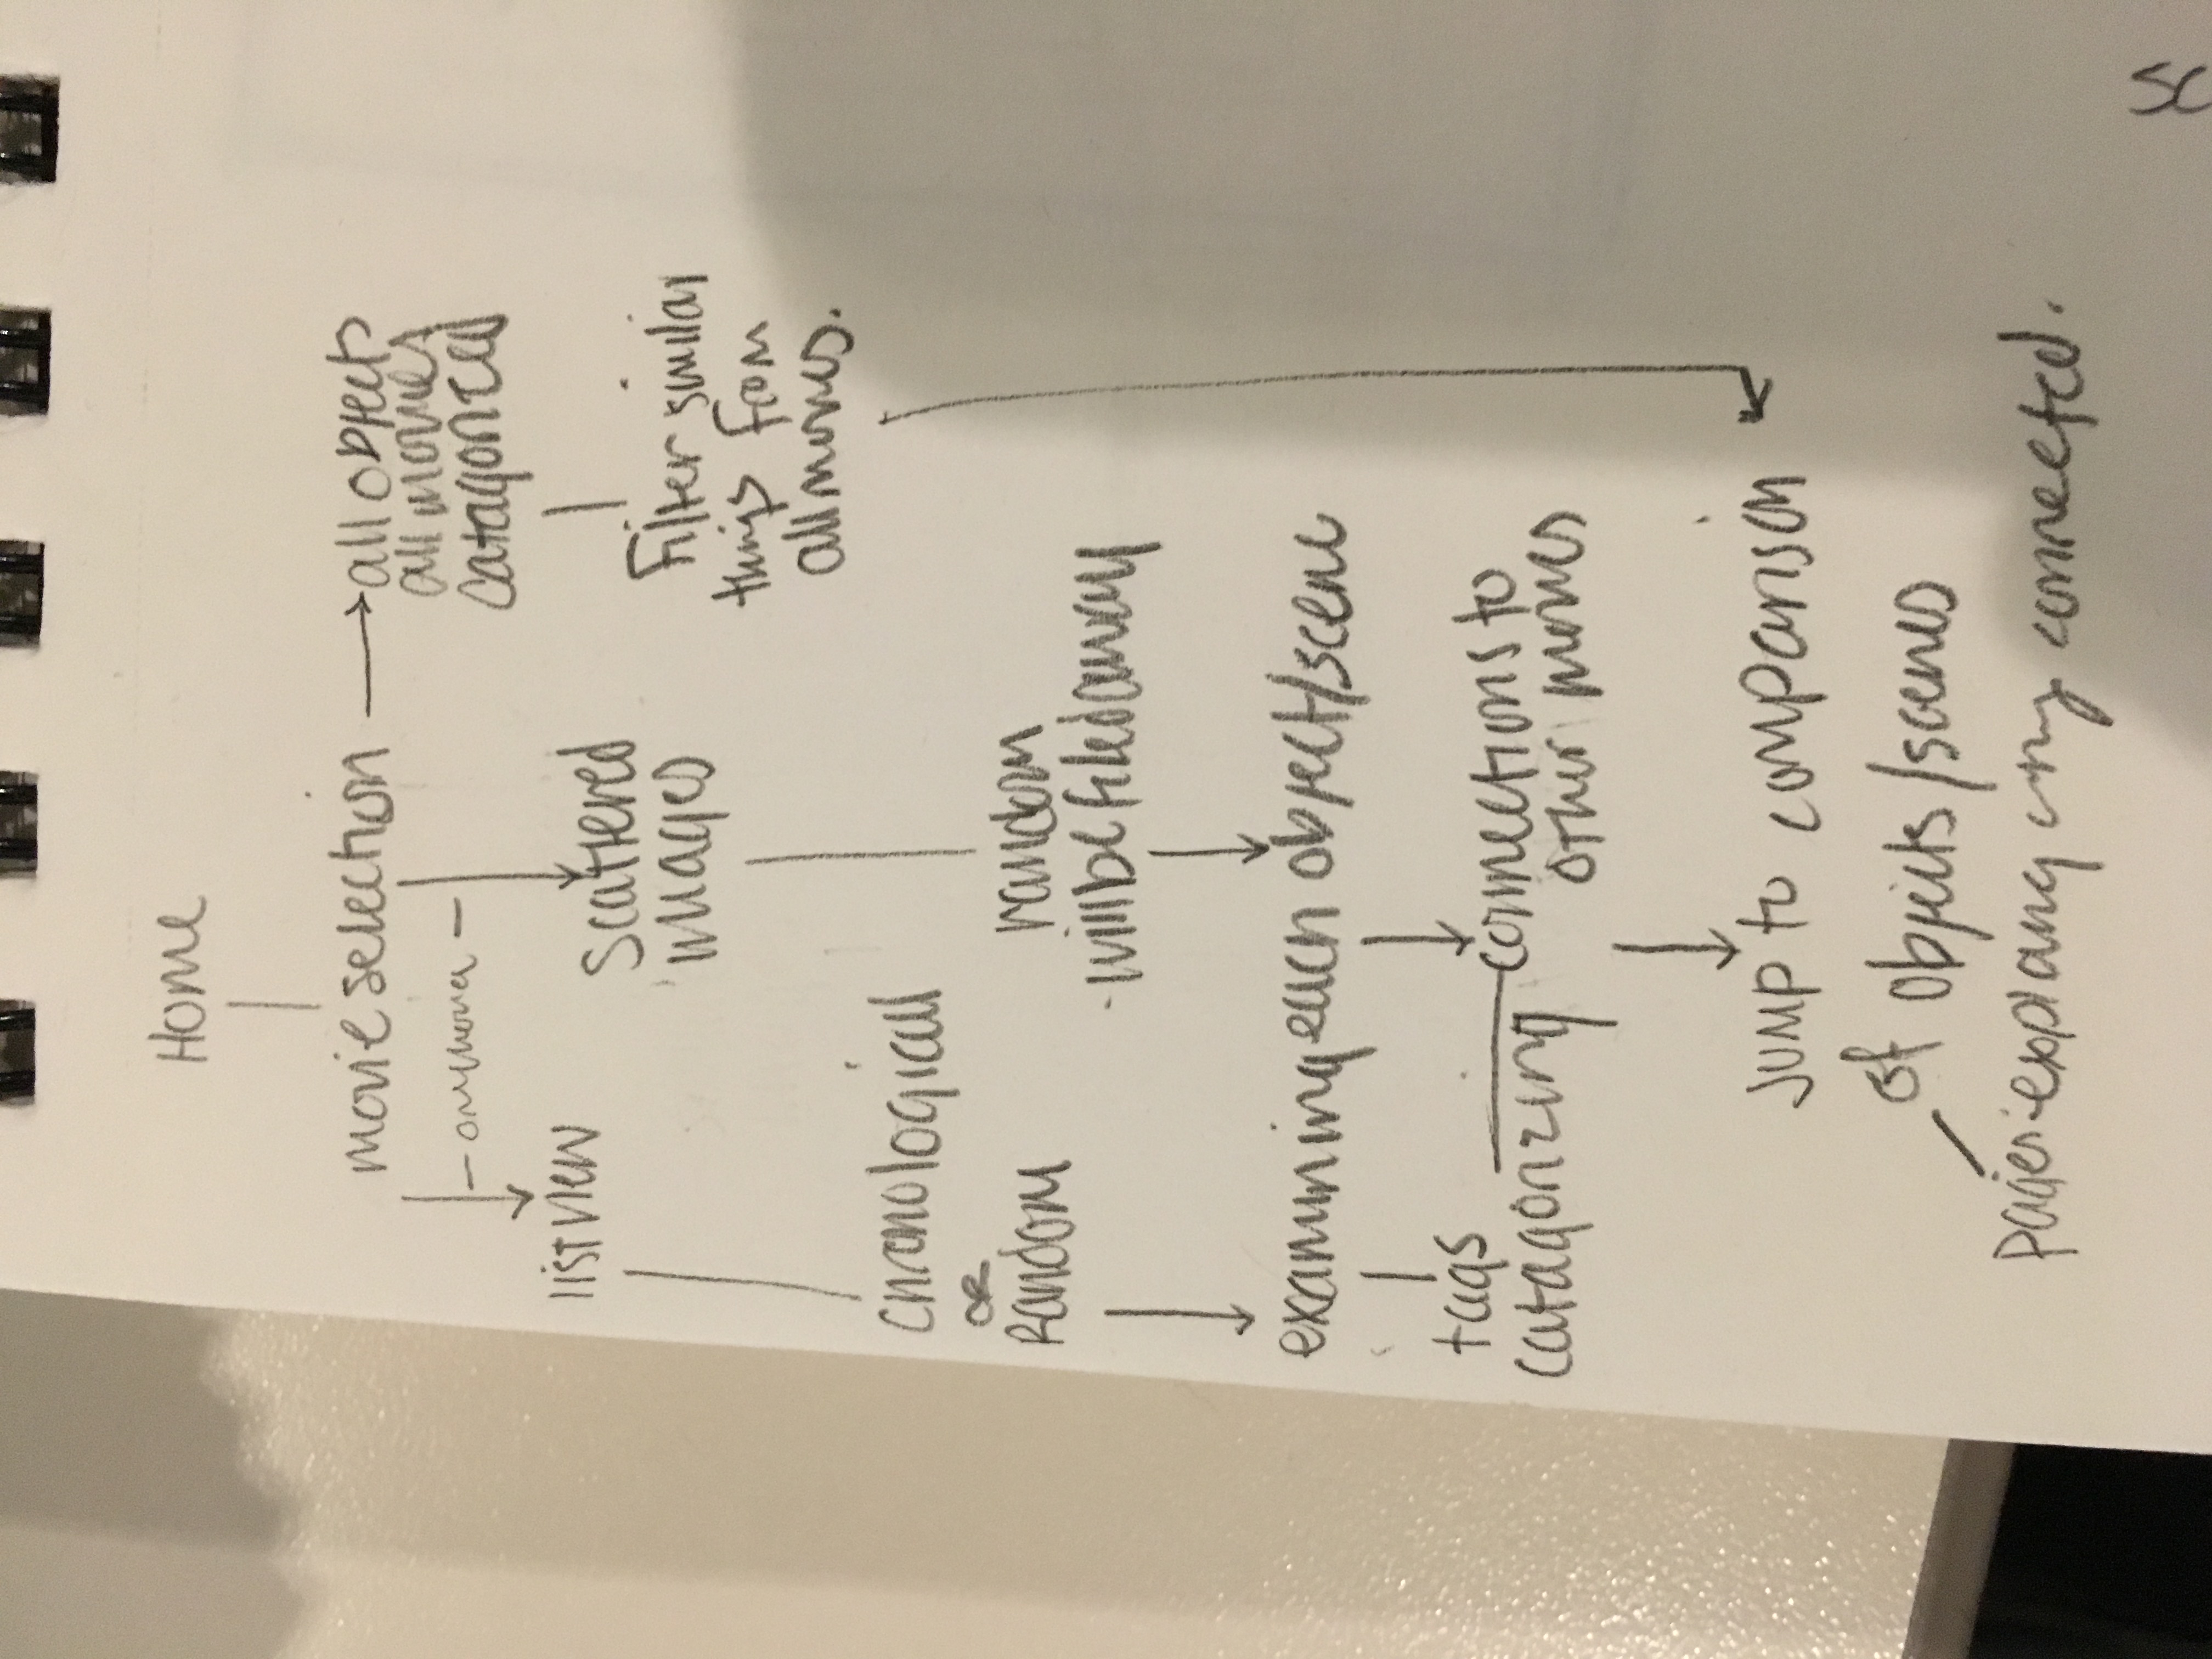 Home
movie selection → all objects
all movies
catagorized
list view
Scattered
images
Filter similar
things from
all movies.
chronologicall
OR
Random
random
-will be filed away
examining each object/scene
tags
catagorizing
connections to
other movies
Jump to comparison
of objects/scenes
why connected.